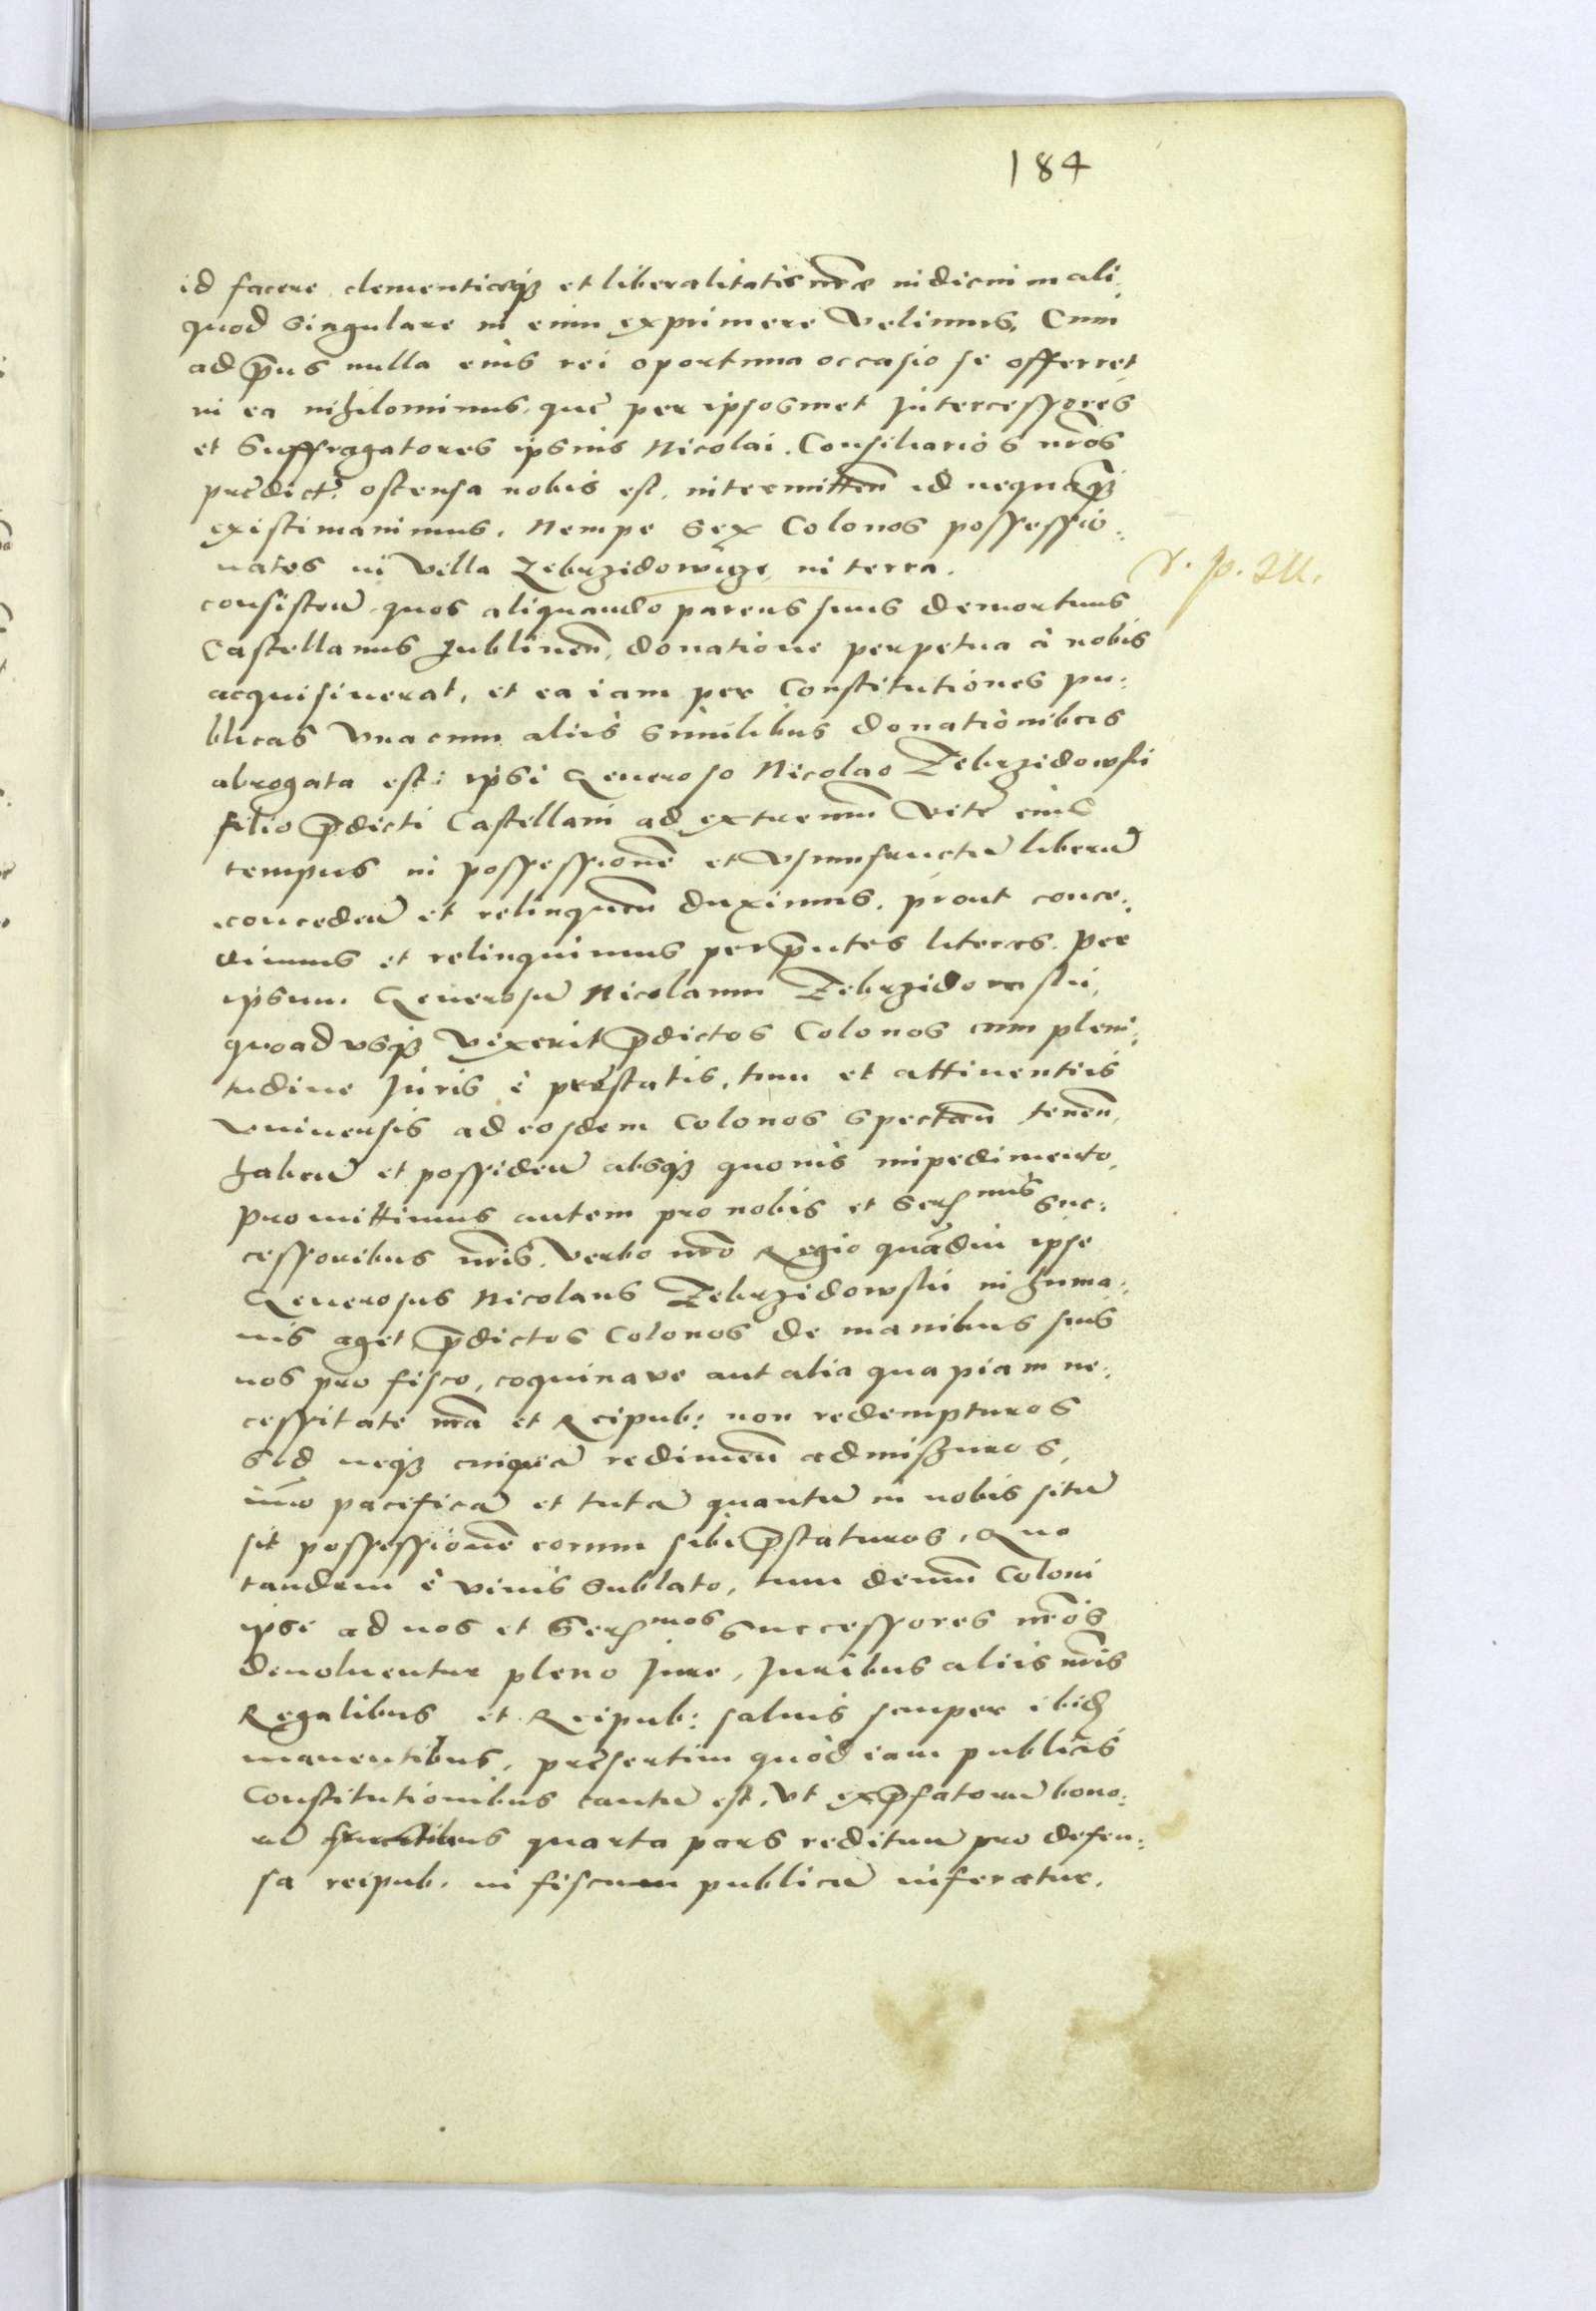 184
id facere clementięq₃ et liberalitatis nr̃ę iudicium ali:
quod singulare in eum exprimere Velimus. Cum
ad p̃ns nulla eius rei oportuna occasio se offerret
in ea nihilominus, quę per ipsosmet Intercessores
et Suffragatores ipsius Nicolai. Consiliarios nr̃os
prędict: ostensa nobis est, intermitten̄ id nequaq̃
existimauimus. Nempe Sex Colonos possessio:
natos in Villa Zebrzidowicze in terra.
consisten̄ quos aliquando parens suus demortuus
Castellanus Lublinen̄, donatione perpetua à nobis
acquisiuerat, et ea iam per Constitutiones pu:
blicas Vna cum aliis similibus donationibus
abrogata est: ipsi Generoso Nicolao Zebrzidowski
filio p̃dicti Castellani ad extremum Vitę eius
tempus in possessionē et Vsumfructū liberū
conceden̄ et relinquen̄ duximus. prout conce:
dimus et relinquimus per p̃ntes literas. Per
ipsum Generosū Nicolaum Zebrzidowskii,
quoad vsq₃ Vixerit p̃dictos Colonos cum pleni:
tudine Iuris è pręstatis, tum et attinentiis
Vniuersis ad eosdem Colonos spectan̄ tenen̄,
haben̄ et possiden̄ absq₃ quouis impedimento,
Promittimus autem pro nobis et Ser̃mis Suc:
cessoribus nr̃is. Verbo nr̃o Regio quādiu ipse
Generosus Nicolaus Zebrzidowskii in huma:
nis aget p̃dictos Colonos de manibus suis
nos pro fisco, coquinave aut alia quapiam ne:
cessitate nr̃a et Reipub: non redempturos
Sed neq₃ cuiquā redimen̄ admissuros,
imo pacificā et tutā quantū in nobis situ
sit possessionē eorum sibi p̃staturos. Quo
tandem è viuis sublato, tum demum Coloni
ipsi ad nos et Ser̃mos Successores nr̃os
deuoluentur pleno Iure, Iuribus aliis nr̃is
Regalibus et Reipub: saluis semper ibid̃
manentibus, pręsertim quòd iam publicis
Constitutionibus cautū est, Vt ex p̃fatorū bono:
rū fructibus quarta pars redituū pro defen:
sa reipub. in fiscum publicū inferatur.